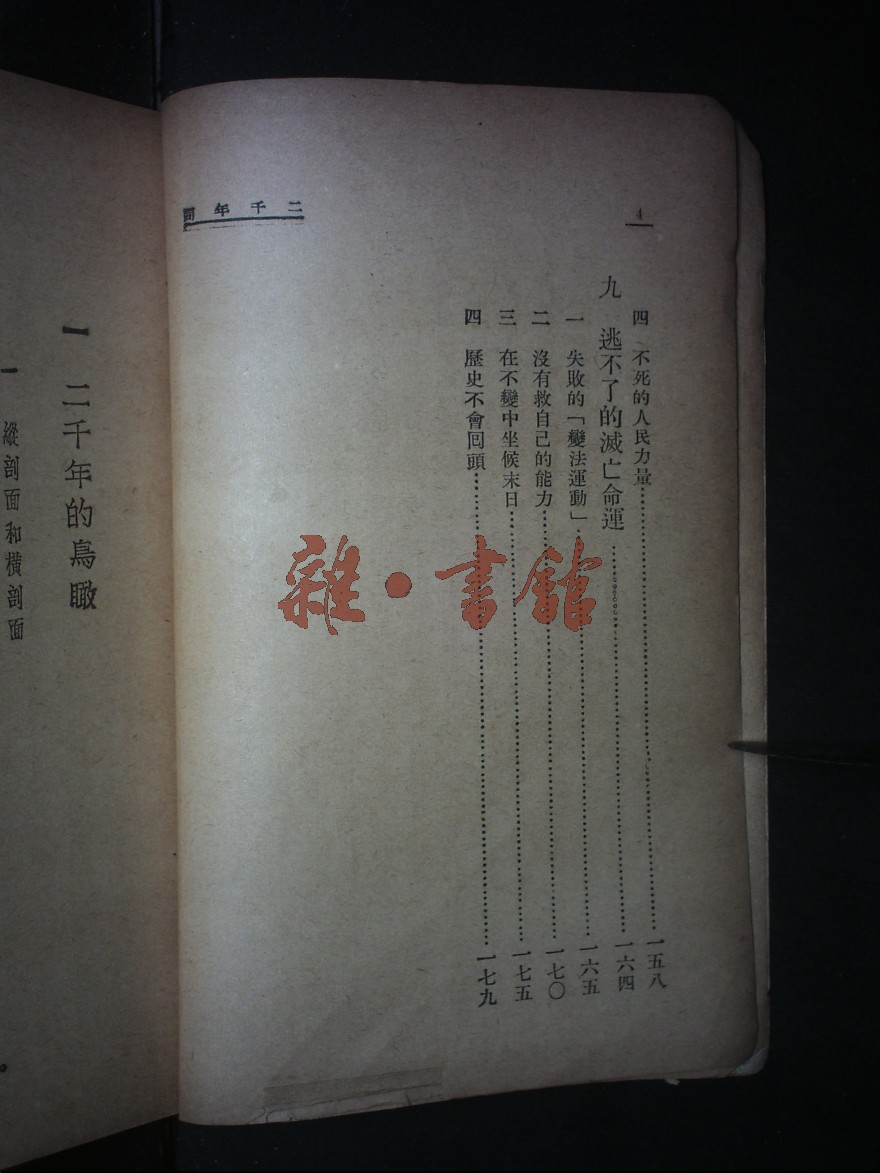 二千年間
4
四 不死的人民力量……一五八
九 逃不了的滅亡命運……一六四
一 失敗的「變法運動」……一六五
二 沒有救自己的能力……一七〇
三 在不變中坐候末日……一七五
四 歷史不會回頭……一七九
雜·書館
一 二千年的鳥瞰
一 縱剖面和橫剖面